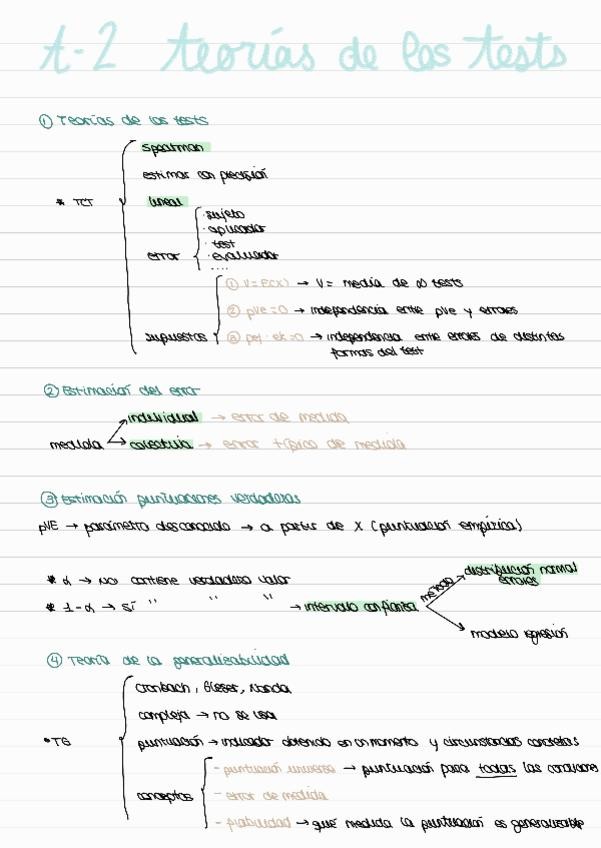 t-2 teorías de los tests
① Teorías de los tests
* TCT
Spearman
estimar con precisión
lineal
error
· sujeto
· aplicador
· test
· evaluador
....
supuestos
① V=E(X) → V= media de ∞ tests
② ρve=0 → independencia entre ρve y errores
③ ρej·ek=0 → independencia entre errores de distintas
formas del test
② Estimación del error
medida
individual → error de medida
colectiva → error típico de medida
③ estimación puntuaciones verdaderas
→ parámetro desconocido → a partir de X (puntuación empírica)
* α → No contiene verdadero valor
* 1-α → sí " " " → intervalo confianza
método
distribución normal
errores
modelo regresión
④ Teoría de la generalizabilidad
* TG
Cronbach, Gleser, Nanda
compleja → no se usa
puntuación → indicador obtenido en un momento y circunstancias concretas
conceptos
- puntuación universo → puntuación para todas las condiciones
- error de medida
- fiabilidad → qué medida la puntuación es generalizable